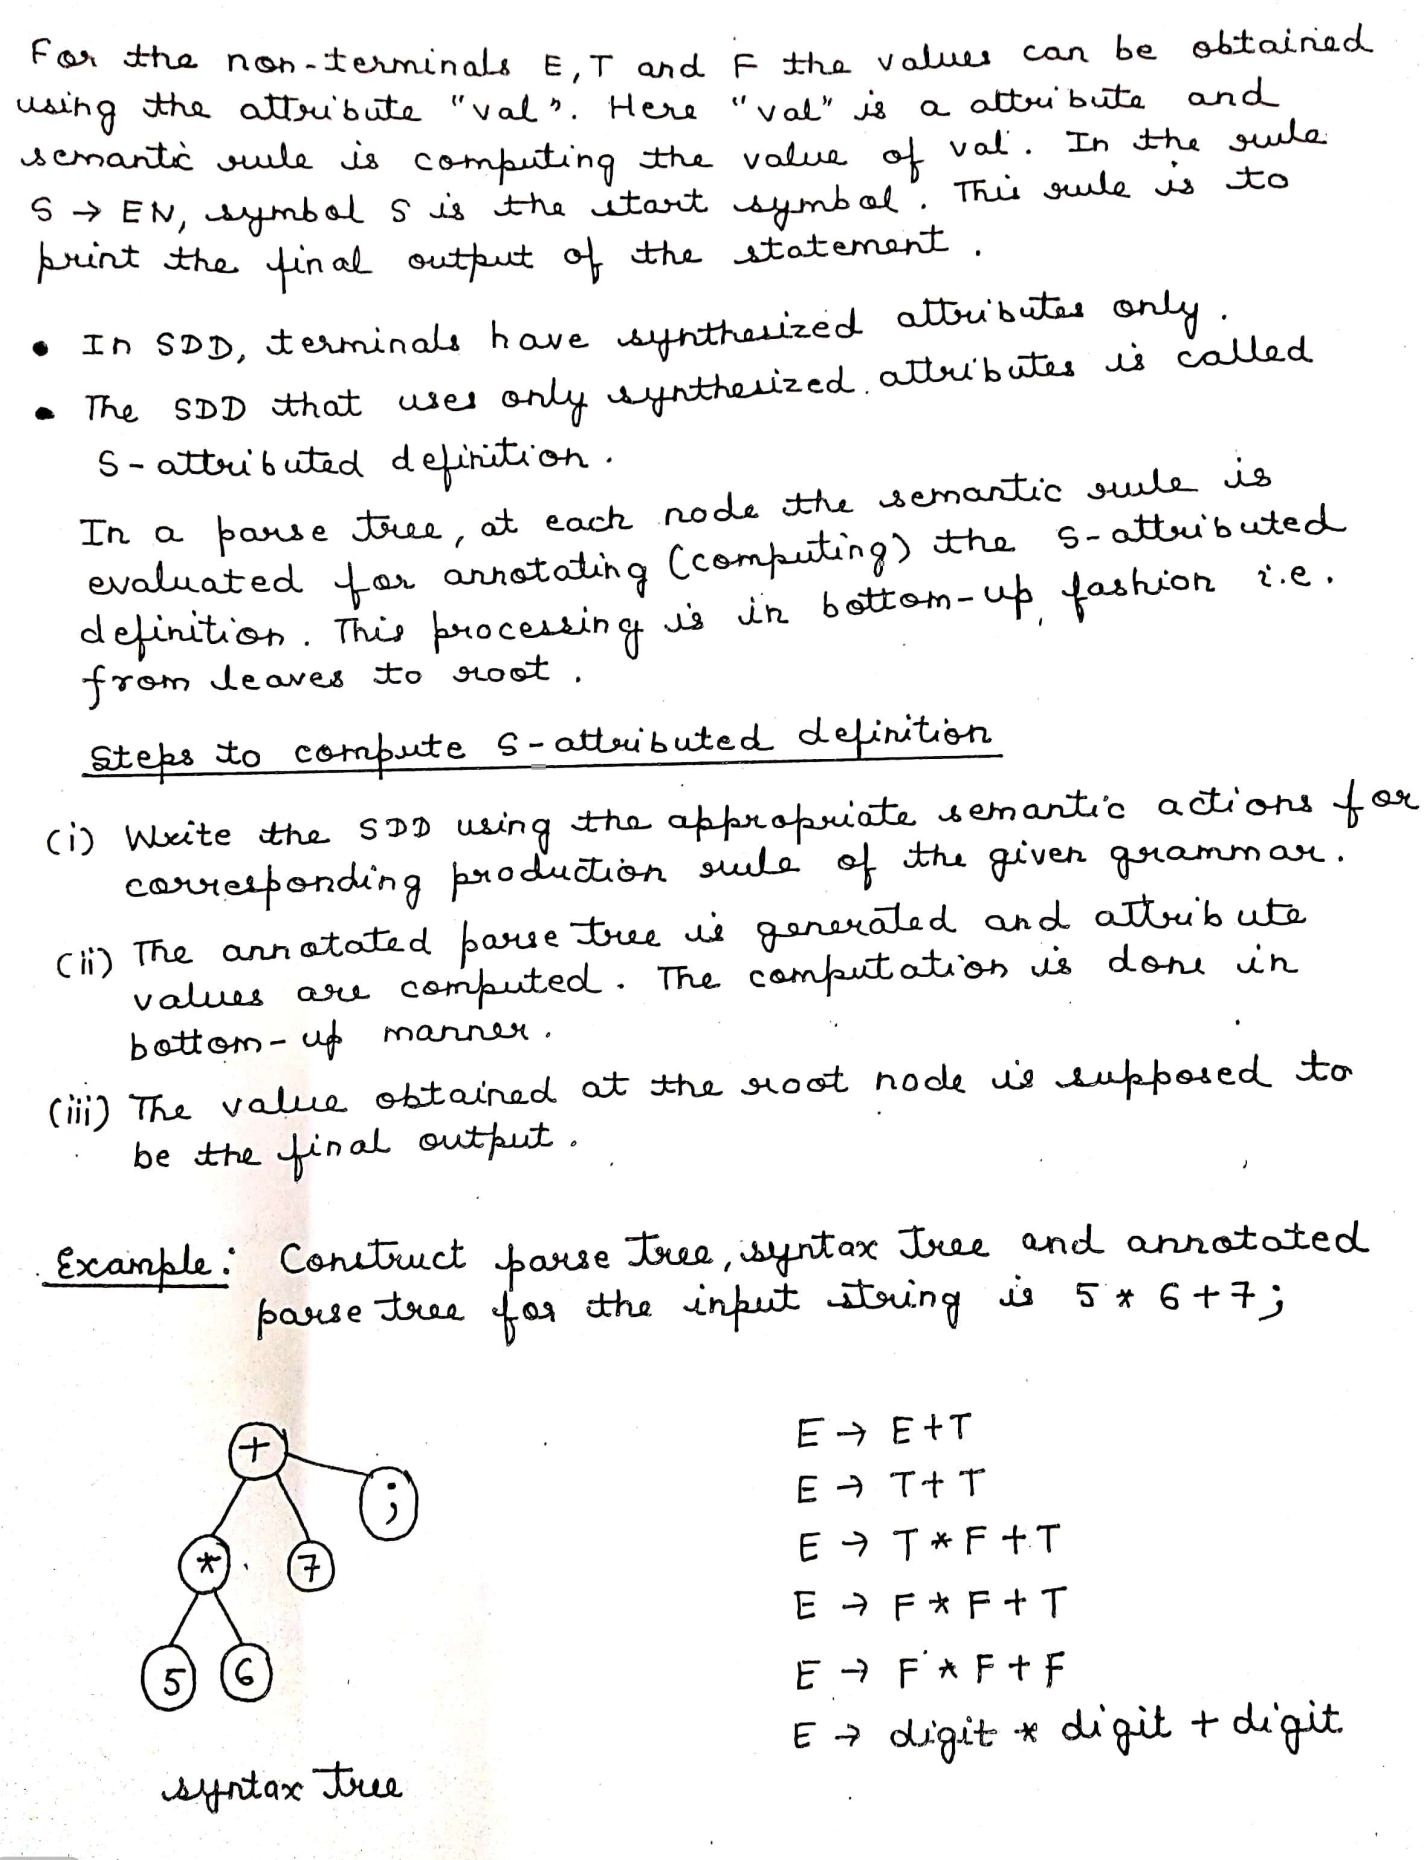 For the non-terminals E, T and F the values can be obtained
using the attribute "val". Here "val" is a attribute and
semantic rule is computing the value of val. In the rule
S → EN, symbol S is the start symbol. This rule is to
print the final output of the statement.
• In SDD, terminals have synthesized attributes only.
• The SDD that uses only synthesized attributes is called
S-attributed definition.
In a parse tree, at each node the semantic rule is
evaluated for annotating (computing) the S-attributed
definition. This processing is in bottom-up fashion i.e.
from leaves to root.
Steps to compute S-attributed definition
(i) Write the SDD using the appropriate semantic actions for
corresponding production rule of the given grammar.
(ii) The annotated parse tree is generated and attribute
values are computed. The computation is done in
bottom-up manner.
(iii) The value obtained at the root node is supposed to
be the final output.
Example: Construct parse tree, syntax tree and annotated
parse tree for the input string is 5 * 6 + 7;
+
;
*
7
5
6
syntax tree
E → E+T
E → T+T
E → T*F+T
E → F*F+T
E → F*F+F
E → digit * digit + digit